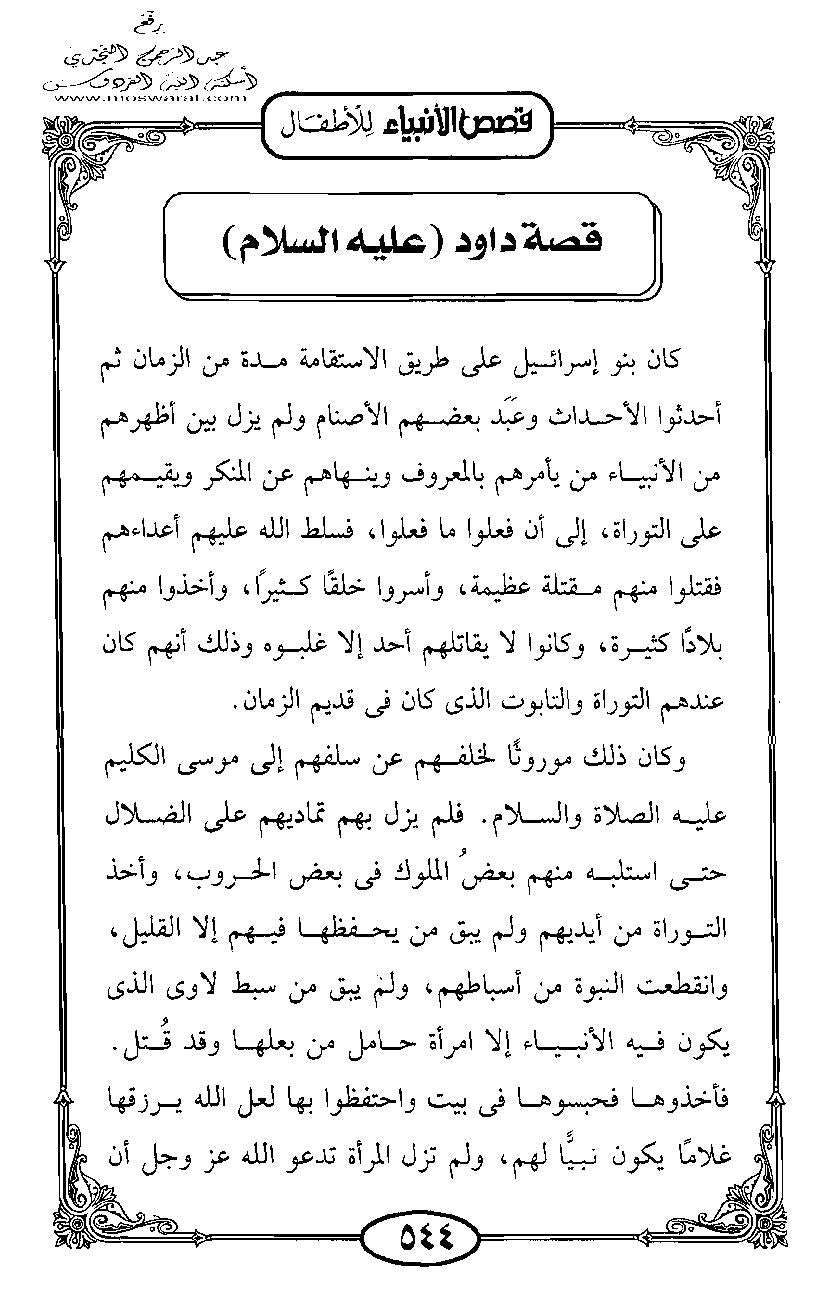 رفع
عبد الرحمن النجدي
أسكنه الله الفردوس
www.moswarat.com
قصص الأنبياء للأطفال
قصة داود (عليه السلام)
كان بنو إسرائيل على طريق الاستقامة مدة من الزمان ثم
أحدثوا الأحداث وعَبَد بعضهم الأصنام ولم يزل بين أظهرهم
من الأنبياء من يأمرهم بالمعروف وينهاهم عن المنكر ويقيمهم
على التوراة، إلى أن فعلوا ما فعلوا، فسلط الله عليهم أعداءهم
فقتلوا منهم مقتلة عظيمة، وأسروا خلقًا كثيرًا، وأخذوا منهم
بلادًا كثيرة، وكانوا لا يقاتلهم أحد إلا غلبوه وذلك أنهم كان
عندهم التوراة والتابوت الذى كان فى قديم الزمان.
وكان ذلك موروثًا لخلفهم عن سلفهم إلى موسى الكليم
عليه الصلاة والسلام. فلم يزل بهم تماديهم على الضلال
حتى استلبه منهم بعضُ الملوك فى بعض الحروب، وأخذ
التوراة من أيديهم ولم يبق من يحفظها فيهم إلا القليل،
وانقطعت النبوة من أسباطهم، ولم يبق من سبط لاوى الذى
يكون فيه الأنبياء إلا امرأة حامل من بعلها وقد قُتل.
فأخذوها فحبسوها فى بيت واحتفظوا بها لعل الله يرزقها
غلامًا يكون نبيًّا لهم، ولم تزل المرأة تدعو الله عز وجل أن
٥٤٤